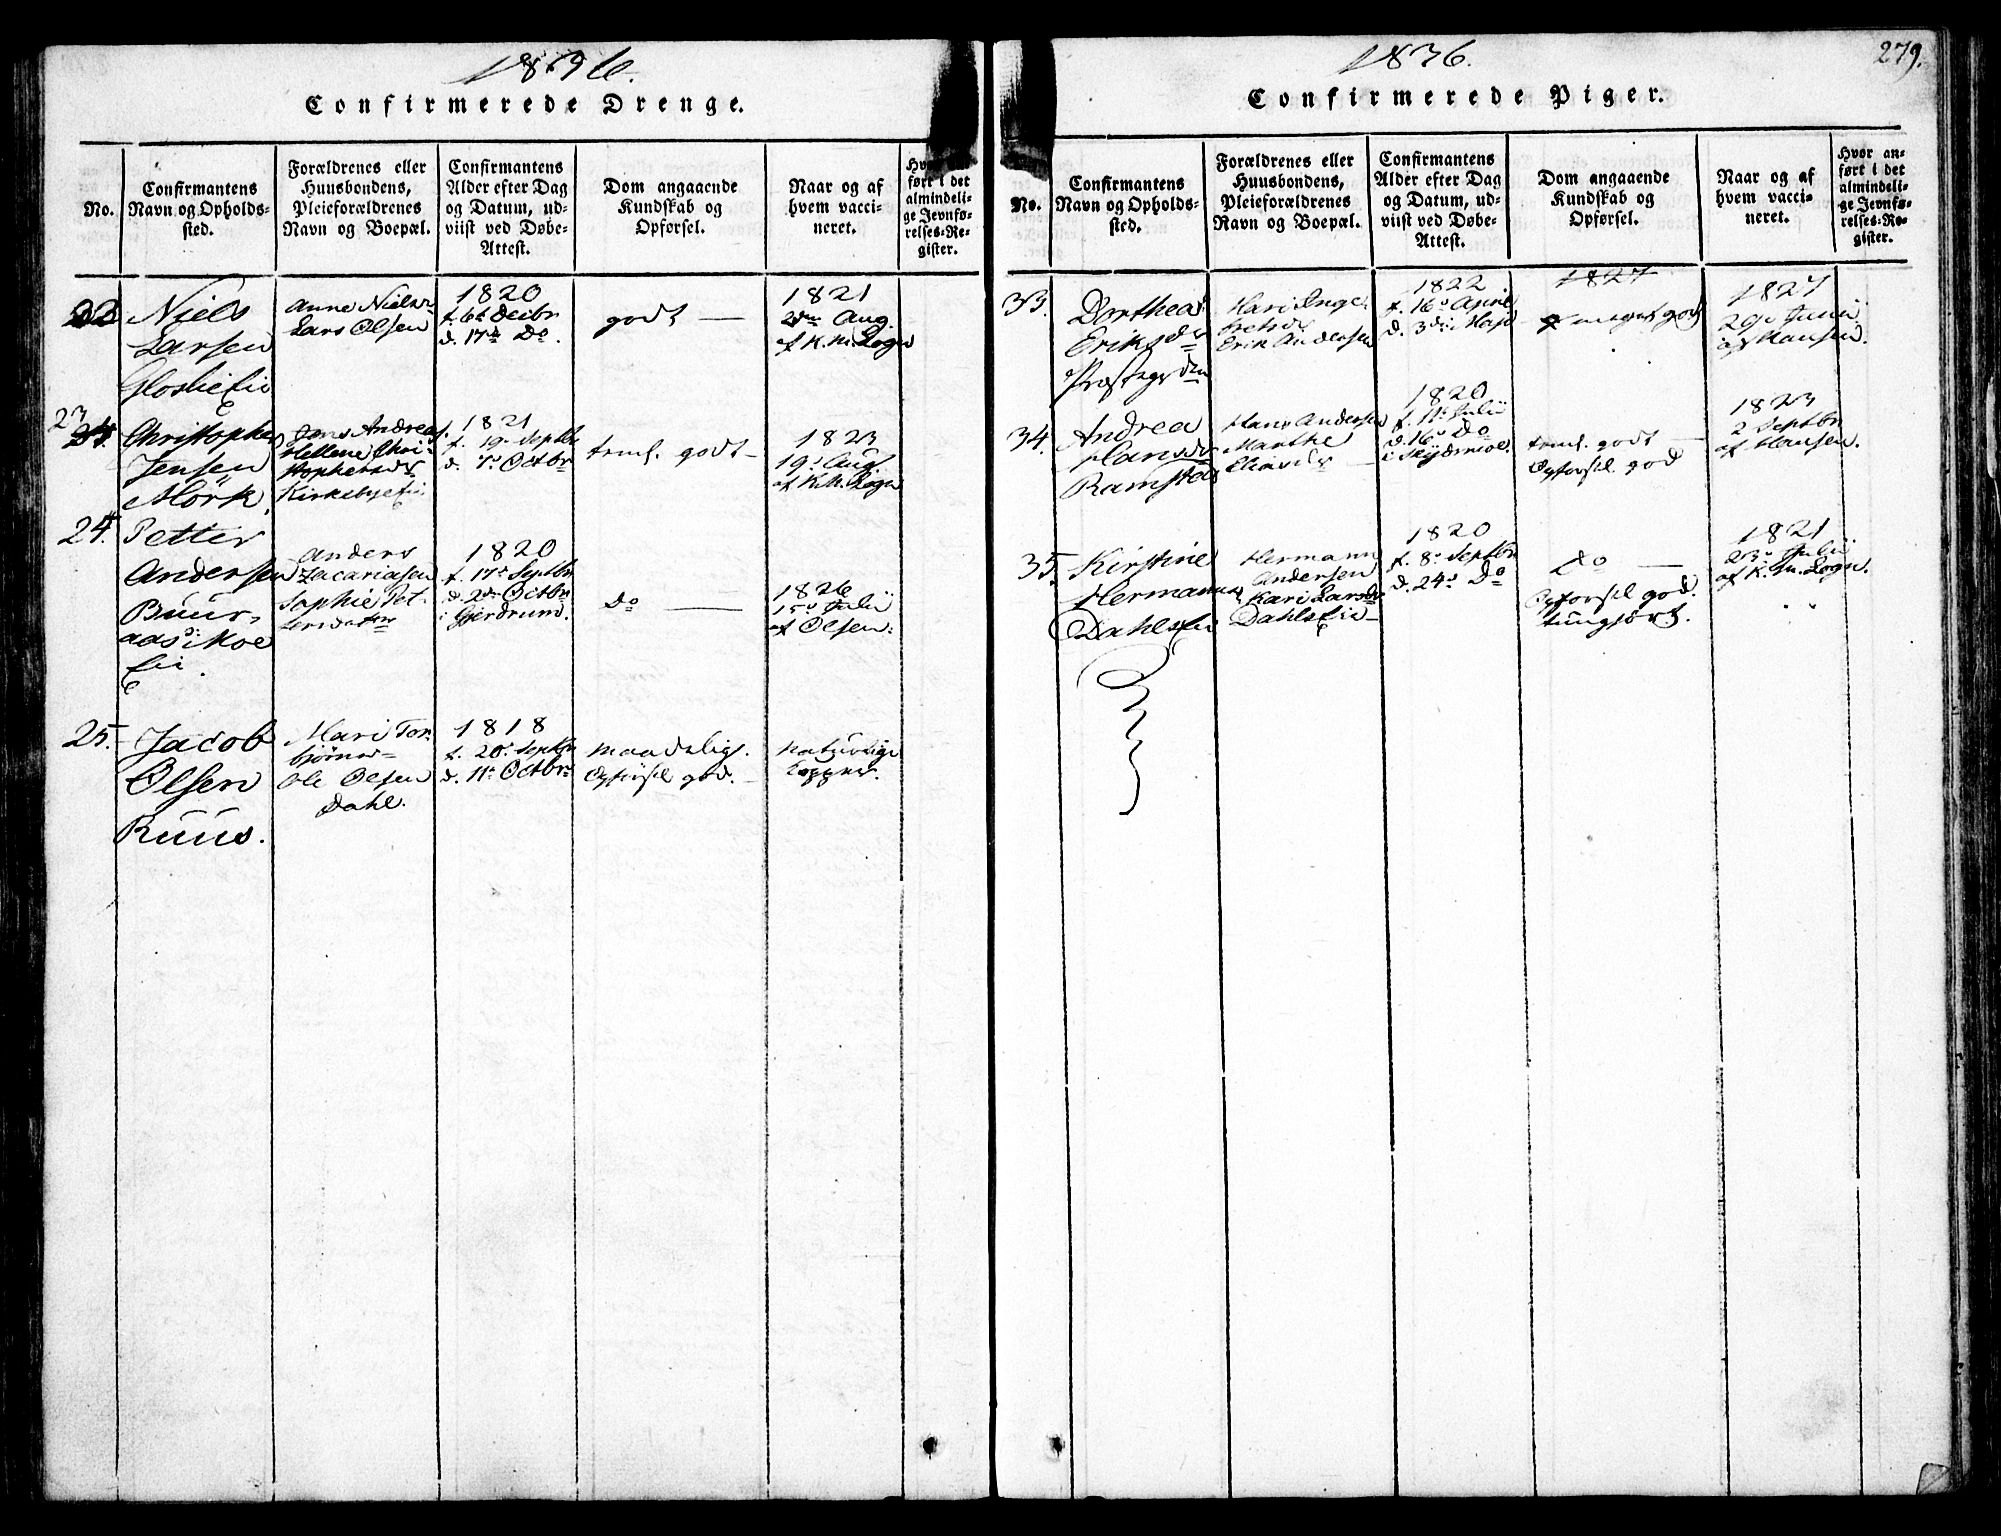 1836.
Confirmerede Drenge.
No.
Confirmantens
Navn og Opholds-
sted.
Forældrenes eller
Huusbondens,
Pleieforældrenes
Navn og Boepæl.
Confirmantens
Alder efter Dag
og Datum, ud-
viist ved Døbe-
Attest.
Dom angaaende
Kundskab og
Opførsel.
Naar og af
hvem vacci-
neret.
ført i det
almindeli-
ge Jevnfø-
relses-Re-
gister.
22
Niels
Larsen
Anne Niels
Lars Olsen
1820
f. 6t Decbr
d. 17d Do.
godt —
1821
Aug.
af K. M. Logn
23
Christopher
Jensen
Mörk.
Jens Andreas
Hellene Chri-
stophersdr
Kirkebye
1821
f. 19 Septbr
d. 7d Octbr
temf. godt —
1823
19d Aug.
af K. M. Logn
24.
Petter
Andersen
Buur,
aas i Moe
Anders
Zacariasen
Sophie Pet-
1820
f. 17d Septbr
d. 2d Octbr
i Gjerdrum.
Do —
1826
15d Julii
af Olsen.
25.
Jacob
Olsen
Ruus.
Mari Tor-
bjørns
Ole Olsen
Dahl.
1818
f. 20d Septbr
d. 11t Octbr
maadelig.
Opførsel god. —
naturlige
kopper.
1836.
279.
Confirmerede Piger.
No.
Confirmantens
Navn og Opholds-
sted.
Forældrenes eller
Huusbondens,
Pleieforældrenes
Navn og Boepæl.
Confirmantens
Alder efter Dag
og Datum, ud-
viist ved Døbe-
Attest.
Dom angaaende
Kundskab og
Opførsel.
Naar og af
hvem vacci-
neret.
Hvor an-
ført i det
almindeli-
ge Jevnfø-
relses-Re-
gister.
33.
Dorthea
Eriksdr
Kari Inge-
Erik Andersen
1822
f. 16d April
d. 3d
1827
meget god
1827
29d Junii
af Hansen.
34.
Andrea
Hansdr
Ramstad
Hans Andersen
Marthe
1820
f. 11t Julii
d. 16d Do
temf. godt —
Opførsel god
1823
2 Septbr
af Hansen.
35.
Kirstine
Hermansdr
Dahlsei
Hermann
Andersen
Kari Larsdr
Dahlsei
1820
f. 8d Septbr
d. 24d Do
Do —
Opførsel god.
tungført.
1821
23d Julii
af K. M. Logn.